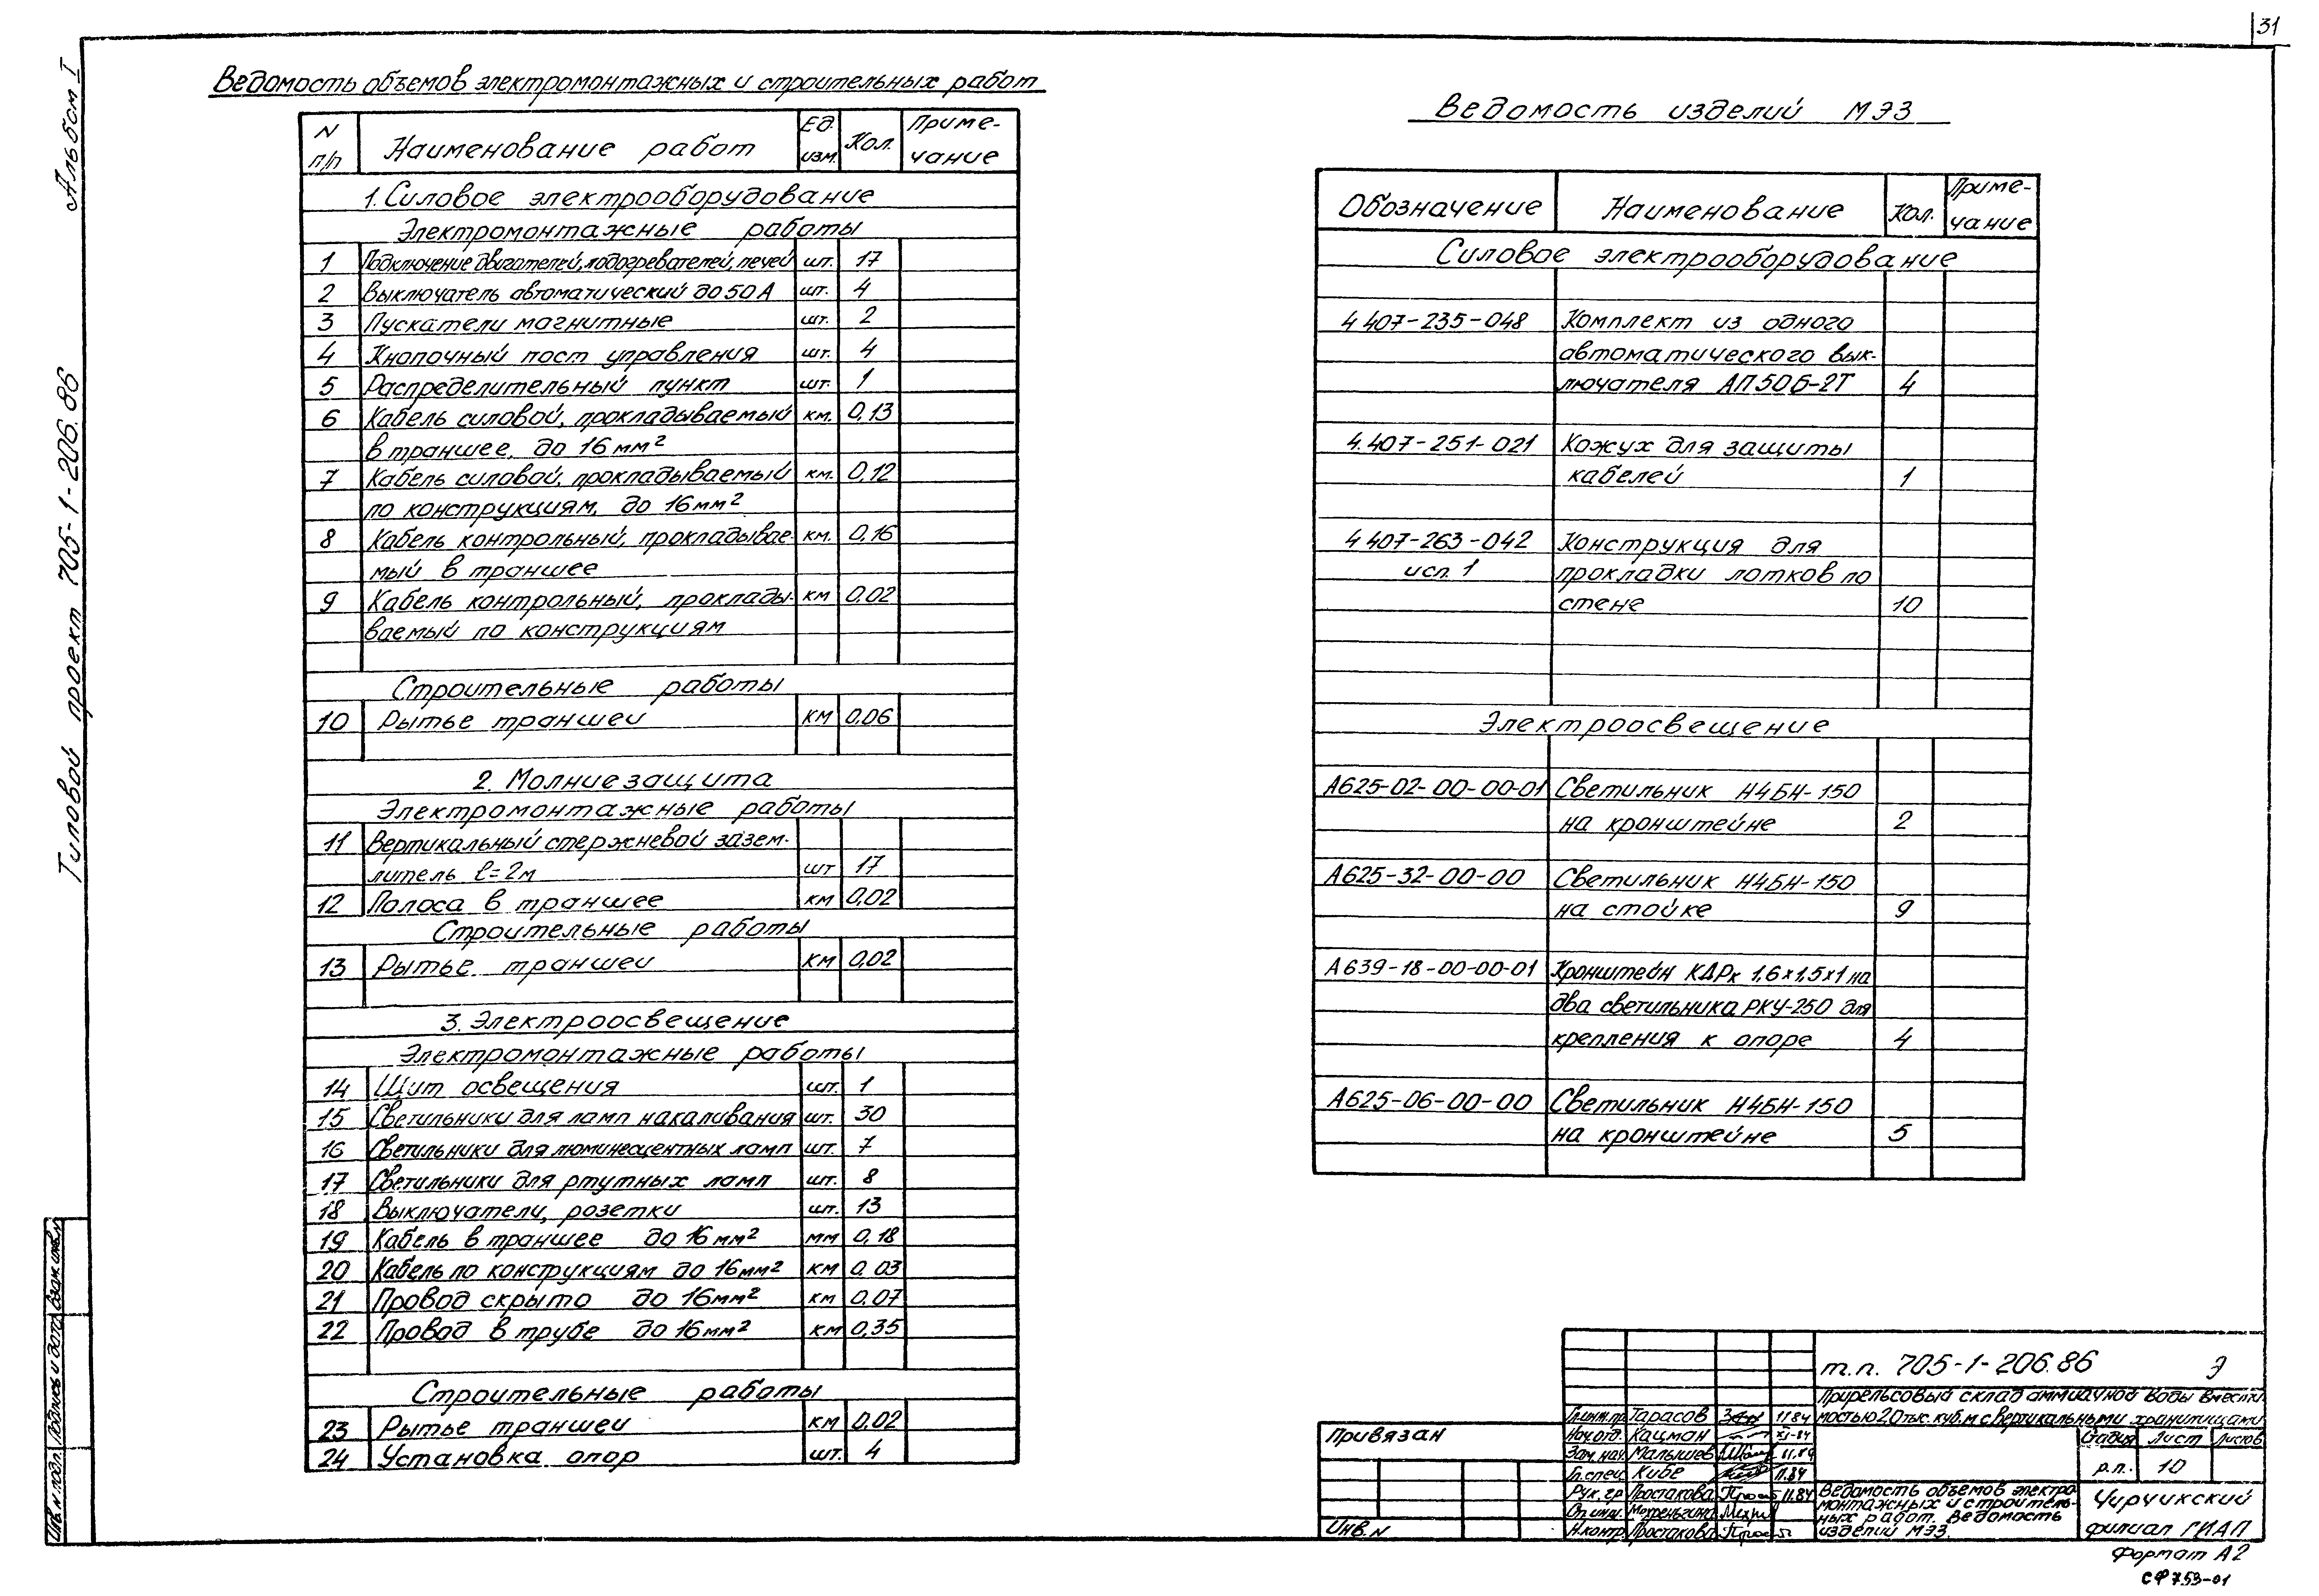 31
Альбом I
Типовой проект 705-1-206.86
Ведомость объемов электромонтажных и строительных работ
N п/п | Наименование работ | Ед. изм. | Кол. | Примечание
1. Силовое электрооборудование
Электромонтажные работы
1 Подключение двигателей, подогревателей, печей шт. 17
2 Выключатель автоматический до 50 А шт. 4
3 Пускатели магнитные шт. 2
4 Кнопочный пост управления шт. 4
5 Распределительный пункт шт. 1
6 Кабель силовой, прокладываемый км. 0,13
в траншее, до 16 мм²
7 Кабель силовой, прокладываемый км. 0,12
по конструкциям, до 16 мм²
8 Кабель контрольный, прокладывае- км. 0,16
мый в траншее
9 Кабель контрольный, проклады- км 0,02
ваемый по конструкциям
Строительные работы
10 Рытье траншеи км 0,06
2. Молниезащита
Электромонтажные работы
11 Вертикальный стержневой зазем-
литель l=2м шт 17
12 Полоса в траншее км 0,02
Строительные работы
13 Рытье траншеи км 0,02
3. Электроосвещение
Электромонтажные работы
14 Щит освещения шт. 1
15 Светильники для ламп накаливания шт. 30
16 Светильники для люминесцентных ламп шт. 7
17 Светильники для ртутных ламп шт. 8
18 Выключатели, розетки шт. 13
19 Кабель в траншее до 16 мм² мм 0,18
20 Кабель по конструкциям до 16 мм² км 0,03
21 Провод скрыто до 16 мм² км 0,07
22 Провод в трубе до 16 мм² км 0,35
Строительные работы
23 Рытье траншеи км 0,02
24 Установка опор шт. 4
Ведомость изделий МЭЗ
Обозначение | Наименование | Кол. | Примечание
Силовое электрооборудование
4 407-235-048 Комплект из одного
автоматического вык-
лючателя АП50Б-2Т 4
4.407-251-021 Кожух для защиты
кабелей 1
4 407-263-042 Конструкция для
исп. 1 прокладки лотков по
стене 10
Электроосвещение
А625-02-00-00-01 Светильник Н4БН-150
на кронштейне 2
А625-32-00-00 Светильник Н4БН-150
на стойке 9
А639-18-00-00-01 Кронштейн КДРк 1,6×1,5×1 на
два светильника РКУ-250 для
крепления к опоре 4
А625-06-00-00 Светильник Н4БН-150
на кронштейне 5
т.п. 705-1-206.86 Э
Прирельсовый склад аммиачной воды вмести-
мостью 2,0 тыс. куб. м с вертикальными хранилищами
Гл.инж.пр. Тарасов 11.84
Нач.отд. Кацман XI-84
Зам.нач. Малышев 11.84
Гл.спец. Кибе 11.84
Рук.гр Простакова 11.84
Ст.инж.
Н.контр. Простакова
Стадия Лист Листов
р.п. 10
Ведомость объемов электро-
монтажных и строитель-
ных работ. Ведомость
изделий МЭЗ.
Чирчикский
филиал ГИАП
Привязан
Инв.N
Формат А2
СФ 753-01
Инв.N подл. Подпись и дата Взам.инв.N